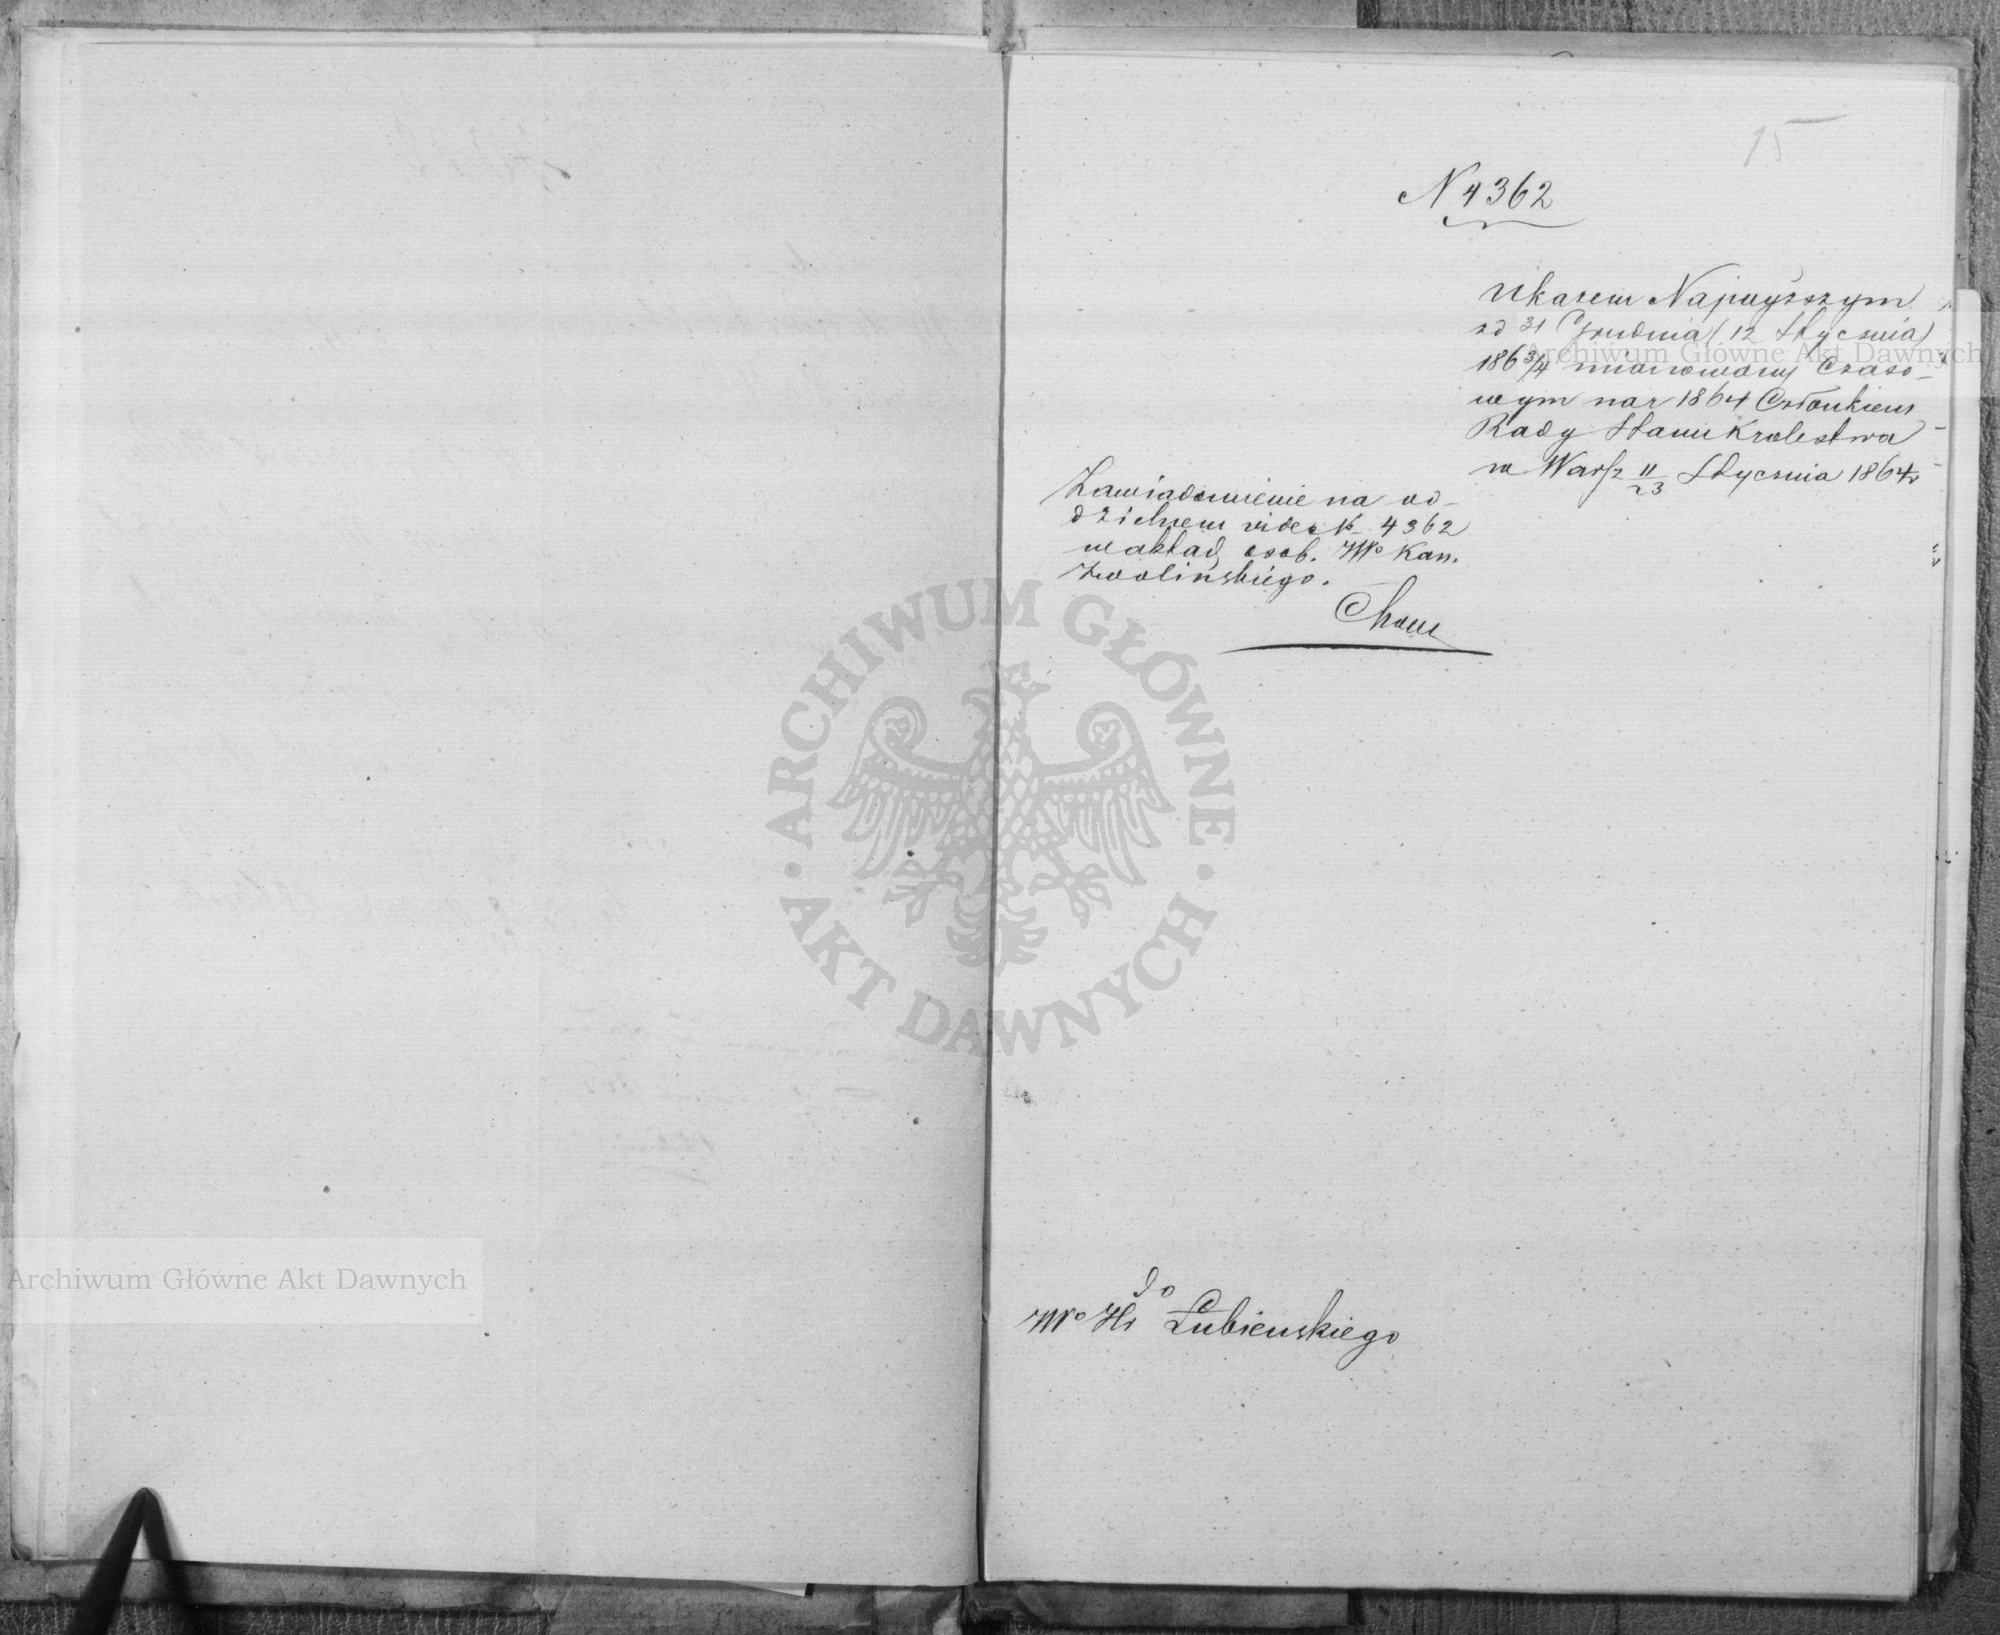 15
N 4362
Ukazem Najwyższym
zd 31 Grudnia/12 Stycznia/
1863/4 mianowany Czaso-
wym na r 1864 Członkiem
Rady Stanu Krolestwa
w Warsz 11/23 Stycznia 1864 r
Zawiadomienie na od-
dzielnem vide N 4362
w aktach osob. JWo Kan.
Zwolińskiego.
do
JWo Hr Łubieńskiego
ARCHIWUM GŁÓWNE AKT DAWNYCH
Archiwum Główne Akt Dawnych
Archiwum Główne Akt Dawnych